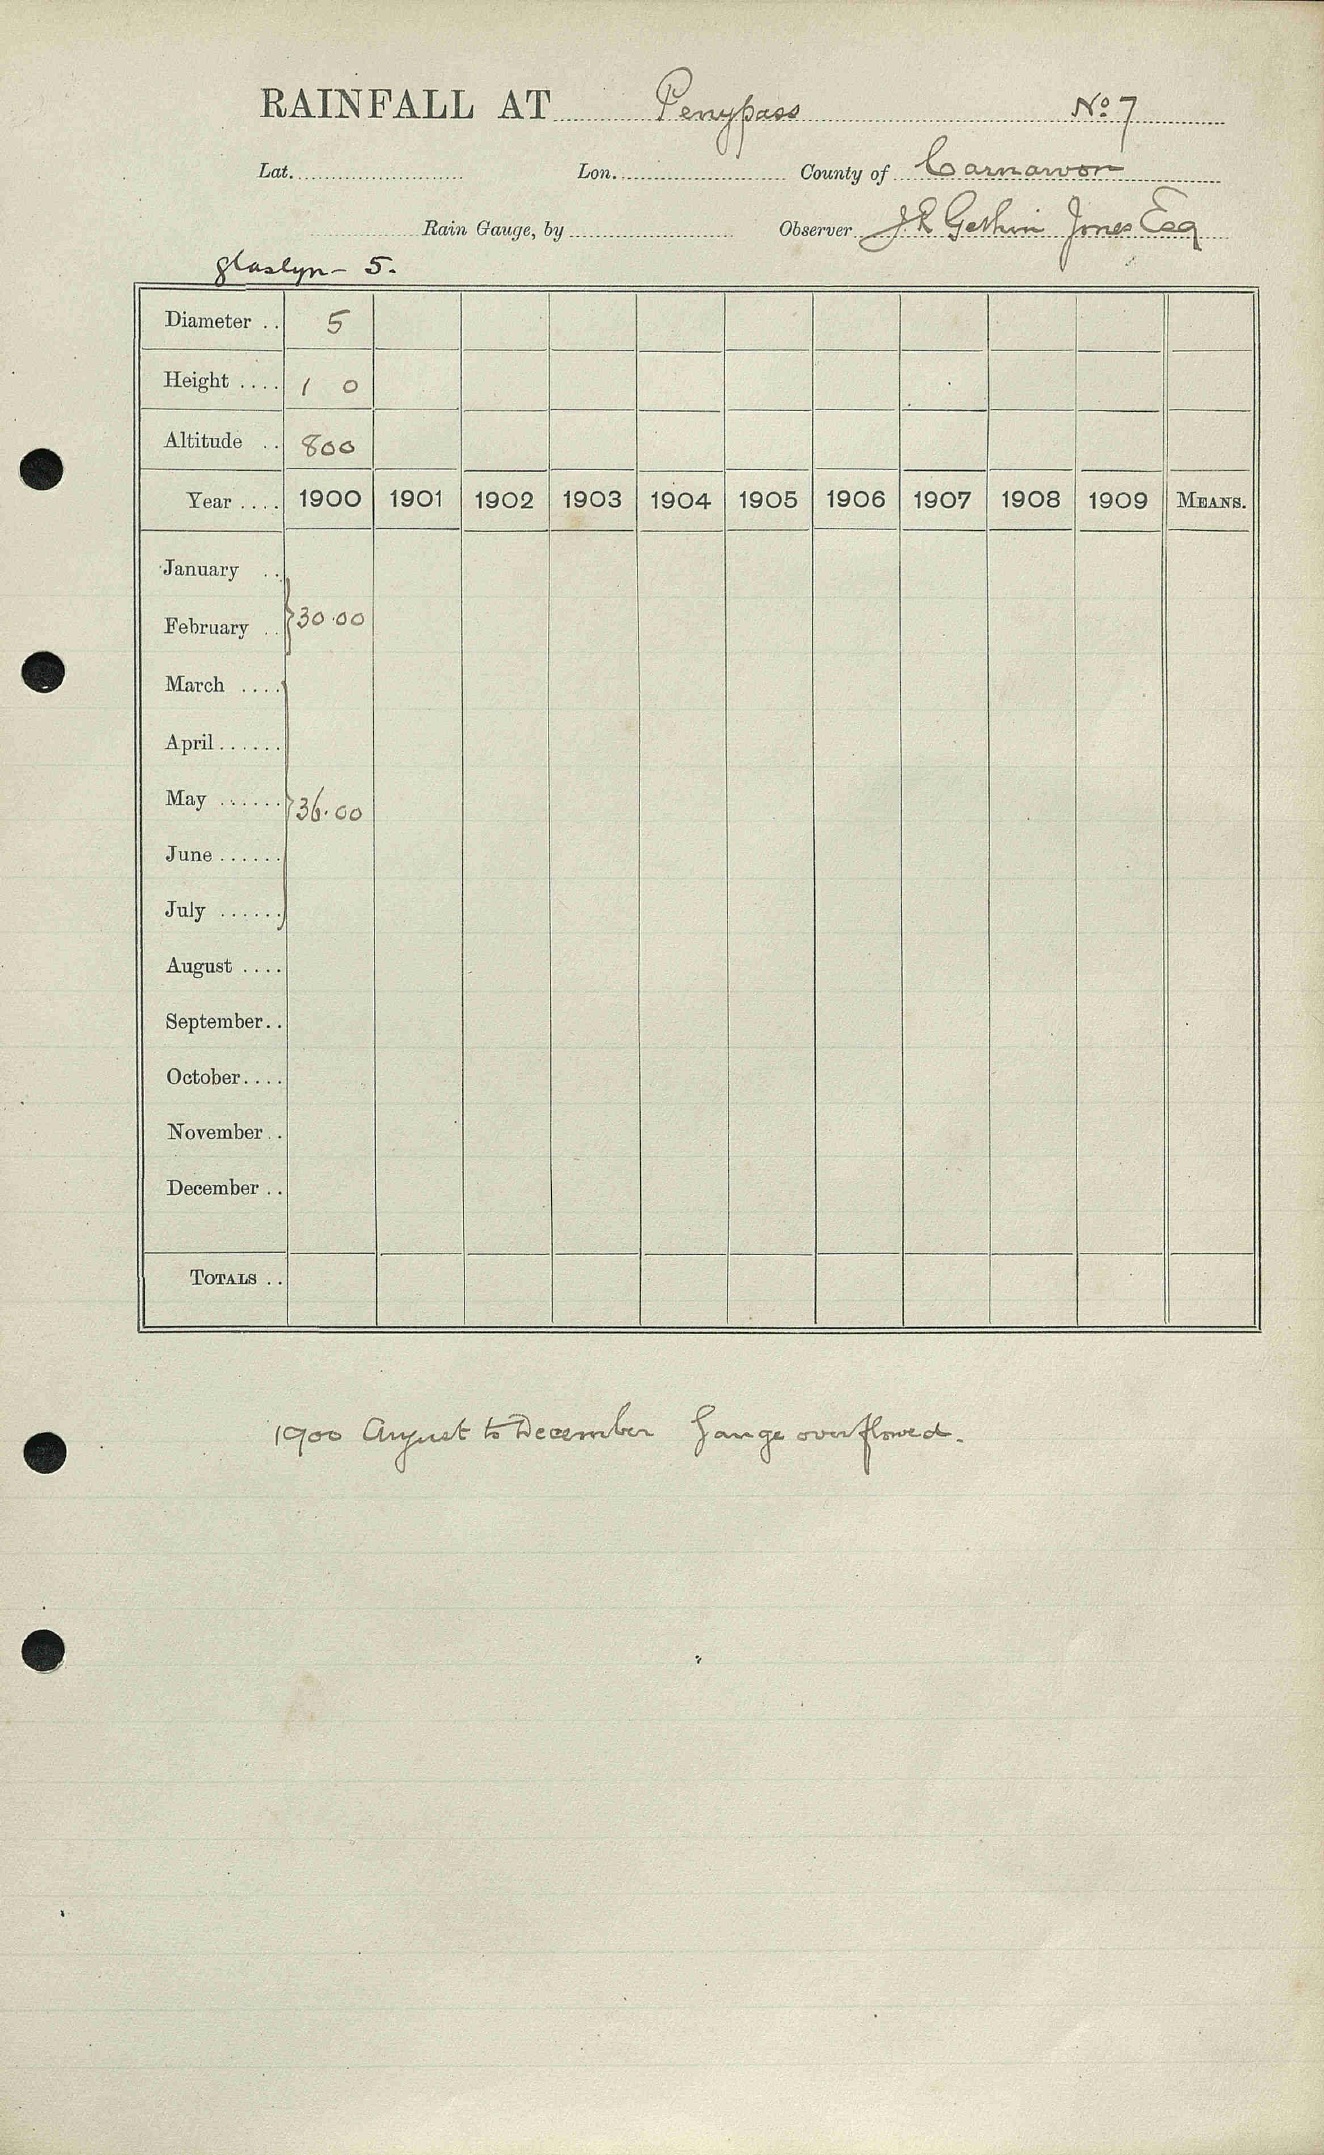 RAINFALL AT Penypass No 7
Lat. Lon. County of Carnarvon
Rain Gauge, by Observer J R Gethin Jones Esq
glaslyn - 5.
Diameter .. 5
Height .... 1 0
Altitude .. 800
Year .... 1900 1901 1902 1903 1904 1905 1906 1907 1908 1909 MEANS.
January ..
February .. 30.00
March ....
April ......
May ...... 36.00
June ......
July ......
August ....
September..
October....
November..
December ..
TOTALS ..
1900 August to December Gauge overflowed.